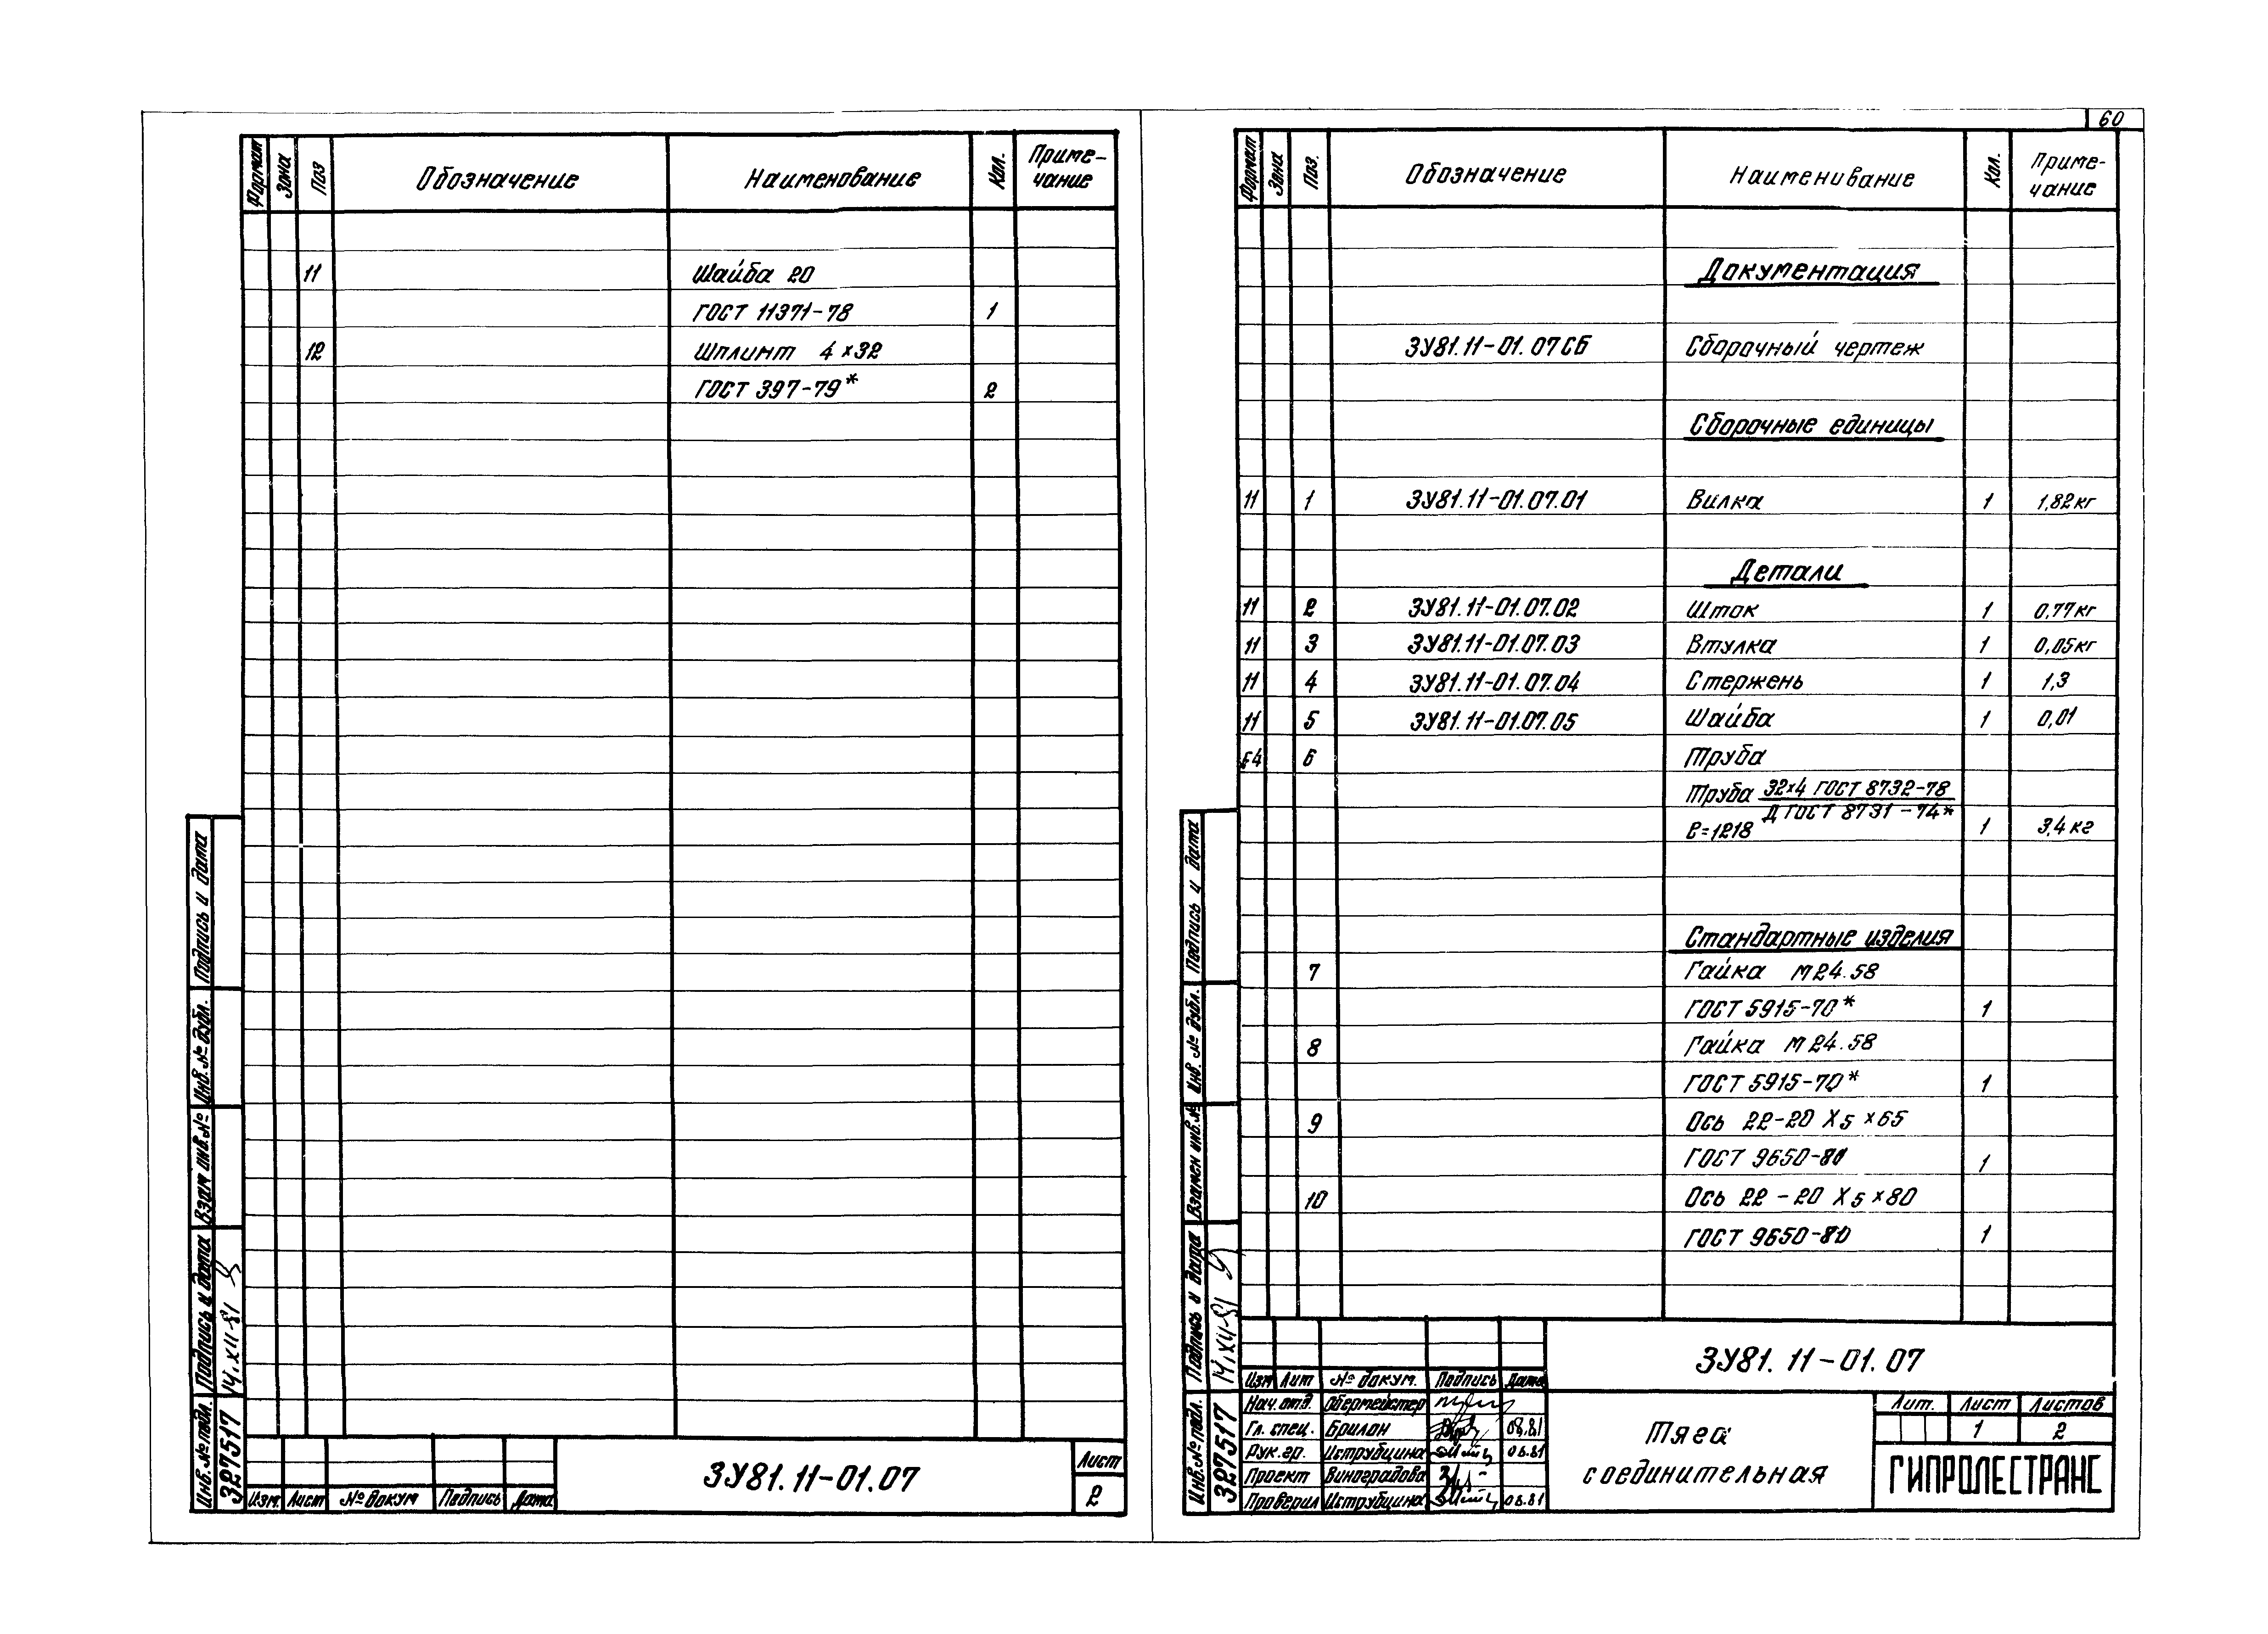 60
Формат Зона Поз Обозначение Наименование Кол. Приме-
чание
11 Шайба 20
ГОСТ 11371-78 1
12 Шплинт 4×32
ГОСТ 397-79* 2
Подпись и дата
Инв. № дубл.
Взам инв. №
Подпись и дата
14.XII-81
Инв. № подл.
327517
Изм. Лист № докум Подпись Дата
ЗУ81.11-01.07
Лист
2
Формат Зона Поз. Обозначение Наименование Кол. Приме-
чание
Документация
ЗУ81.11-01.07СБ Сборочный чертеж
Сборочные единицы
11 1 ЗУ81.11-01.07.01 Вилка 1 1,82кг
Детали
11 2 ЗУ81.11-01.07.02 Шток 1 0,77кг
11 3 ЗУ81.11-01.07.03 Втулка 1 0,05кг
11 4 ЗУ81.11-01.07.04 Стержень 1 1,3
11 5 ЗУ81.11-01.07.05 Шайба 1 0,01
6 Труба
Труба 32×4 ГОСТ 8732-78
Д ГОСТ 8731-74*
ℓ=1218 1 3,4кг
Стандартные изделия
7 Гайка М24.58
ГОСТ 5915-70* 1
8 Гайка М24.58
ГОСТ 5915-70* 1
9 Ось 22-20 Х5×65
ГОСТ 9650-80 1
10 Ось 22-20 Х5×80
ГОСТ 9650-80 1
Подпись и дата
Инв. № дубл.
Взамен инв. №
Подпись и дата
14.XII-81
Инв. № подл.
327517
ЗУ81.11-01.07
Изм Лит № докум. Подпись Дата
Нач. отд. Обермейстер
Гл. спец. Брилон 08.81
Рук. гр. Иструбцина 06.81
Проект Виноградова
Проверил Иструбцина 06.81
Тяга
соединительная
Лит. Лист Листов
1 2
ГИПРОЛЕСТРАНС